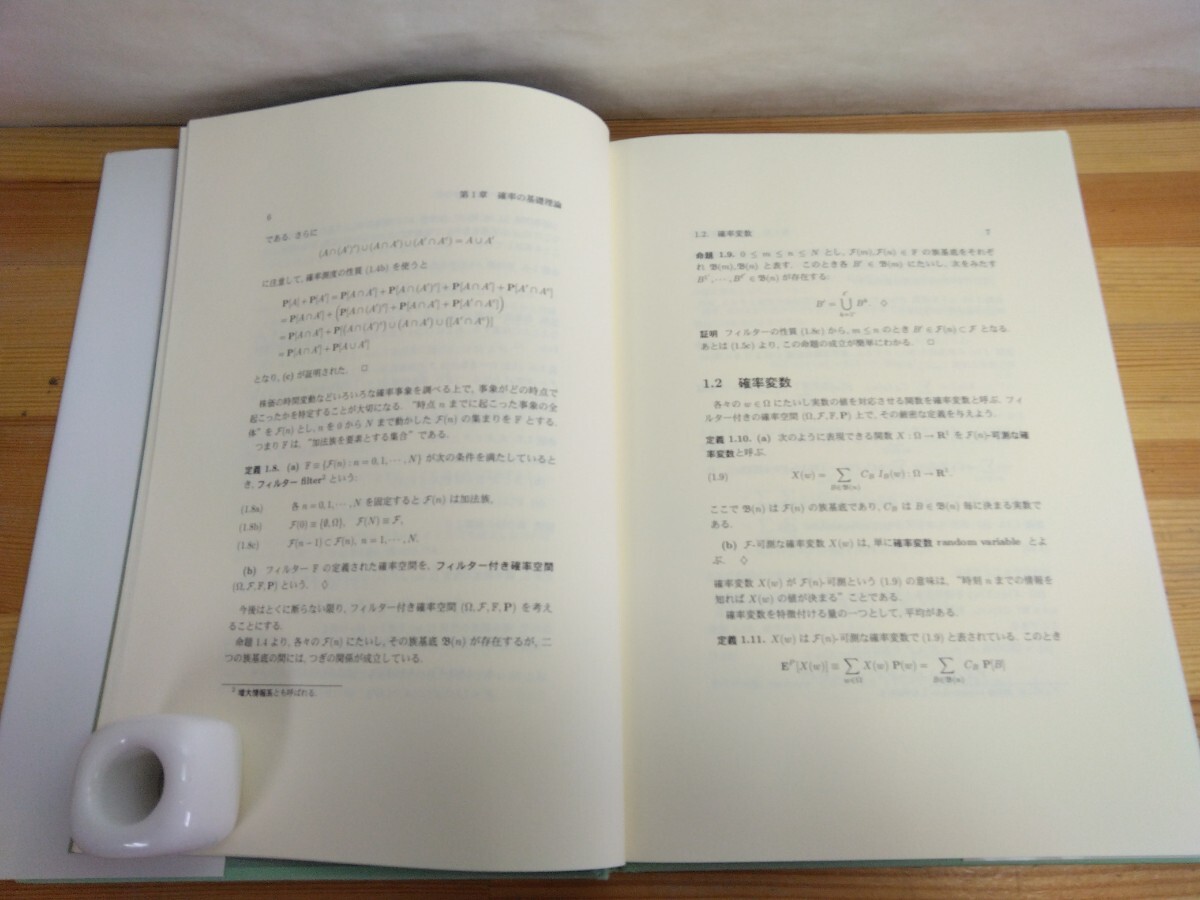 6
第1章 確率の基礎理論
である. さらに
(A∩(A′)ᶜ)∪(A∩A′)∪(A′∩Aᶜ) = A∪A′
に注意して, 確率測度の性質 (1.4b) を使うと
P[A] + P[A′] = P[A∩A′] + P[A∩(A′)ᶜ] + P[A∩A′] + P[A′∩Aᶜ]
= P[A∩A′] + (P[A∩(A′)ᶜ] + P[A∩A′] + P[A′∩Aᶜ])
= P[A∩A′] + P[(A∩(A′)ᶜ)∪(A∩A′)∪(A′∩Aᶜ)]
= P[A∩A′] + P[A∪A′]
となり, (c) が証明された. □
株価の時間変動などいろいろな確率事象を調べる上で, 事象がどの時点で
起こったかを特定することが大切になる. “時点 n までに起こった事象の全
体” を F(n) とし, n を 0 から N まで動かした F(n) の集まりを F とする.
つまり F は, “加法族を要素とする集合” である.
定義 1.8. (a) F ≡ {F(n) : n = 0, 1, ⋯, N} が次の条件を満たしていると
き, フィルター filter² という:
(1.8a) 各 n = 0, 1, ⋯, N を固定すると F(n) は加法族.
(1.8b) F(0) ≡ {∅, Ω}, F(N) ≡ F.
(1.8c) F(n−1) ⊂ F(n), n = 1, ⋯, N.
(b) フィルター F の定義された確率空間を, フィルター付き確率空間
(Ω, F, F, P) という. ◇
今後はとくに断らない限り, フィルター付き確率空間 (Ω, F, F, P) を考え
ることにする.
命題 1.4 より, 各々の F(n) にたいし, その族基底 B(n) が存在するが, 二
つの族基底の間には, つぎの関係が成立している.
² 増大情報系とも呼ばれる.
1.2. 確率変数
7
命題 1.9. 0 ≤ m ≤ n ≤ N とし, F(m), F(n) ∈ F の族基底をそれぞ
れ B(m), B(n) と表す. このとき各 B′ ∈ B(m) にたいし, 次をみたす
∈ B(n) が存在する:
証明 フィルターの性質 (1.8c) から, m ≤ n のとき B′ ∈ F(n) ⊂ F となる.
あとは (1.5c) より, この命題の成立が簡単にわかる. □
1.2 確率変数
各々の w ∈ Ω にたいし実数の値を対応させる関数を確率変数と呼ぶ. フィ
ルター付きの確率空間 (Ω, F, F, P) 上で, その厳密な定義を与えよう.
定義 1.10. (a) 次のように表現できる関数 X : Ω → R¹ を F(n)-可測な確
率変数と呼ぶ.
(1.9) X(w) = ∑_{B∈B(n)} C_B 1_B(w) : Ω → R¹.
ここで B(n) は F(n) の族基底であり, C_B は B ∈ B(n) 毎に決まる実数で
ある.
(b) F-可測な確率変数 X(w) は, 単に確率変数 random variable とよ
ぶ. ◇
確率変数 X(w) が F(n)-可測という (1.9) の意味は, “時刻 n までの情報を
知れば X(w) の値が決まる” ことである.
確率変数を特徴付ける量の一つとして, 平均がある.
定義 1.11. X(w) は F(n)-可測な確率変数で (1.9) と表されている. このとき
E^P[X(w)] ≡ ∑_{w∈Ω} X(w) P(w) = ∑_{B∈B(n)} C_B P[B]